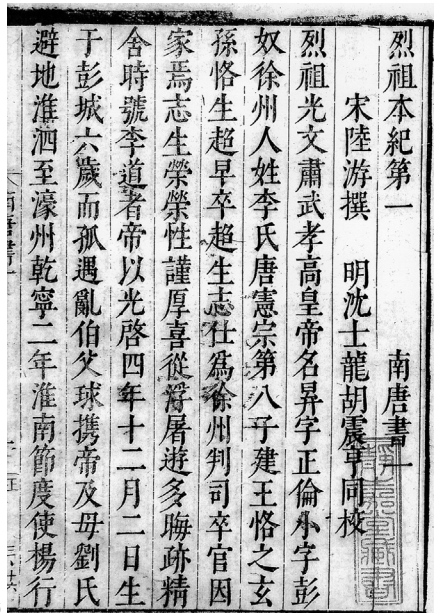 烈祖本紀第一　南唐書一
宋陸游撰　明沈士龍胡震亨同校
烈祖光文肅武孝高皇帝名昪字正倫小字彭
奴徐州人姓李氏唐憲宗第八子建王恪之玄
孫恪生超早卒超生志仕爲徐州判司卒官因
家焉志生榮榮性謹厚喜從浮屠遊多晦跡精
舍時號李道者帝以光啓四年十二月二日生
于彭城六歲而孤遇亂伯父球携帝及母劉氏
避地淮泗至濠州乾寧二年淮南節度使楊行